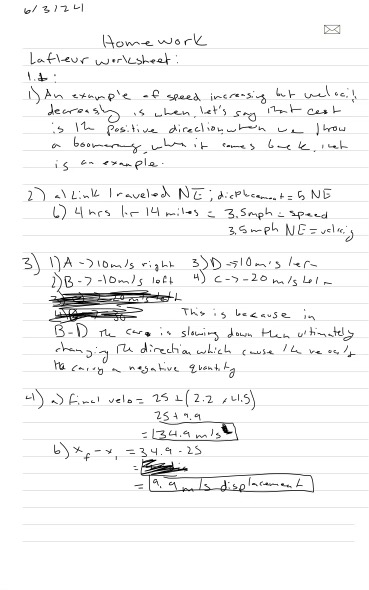 6/3/24
Homework
Lafleur worksheet:
1.b:
1) An example of speed increasing but velocity
decreasing is when, let's say that east
is the positive direction when we throw
a boomerang, when it comes back, that
is an example.
2) a) Link traveled NE; displacement = 5 NE
b) 4 hrs for 14 miles = 3.5mph = speed
3.5mph NE = velocity
3) 1) A -> 10m/s right 3) D -> 10m/s left
2) B -> -10m/s left 4) C -> -20 m/s left
This is because in
B-D the car is slowing down then ultimately
changing the direction which cause the velocity
to carry a negative quantity
4) a) final velo = 25 + (2.2 × 4.5)
25 + 9.9
= 34.9 m/s
b) xf - xi = 34.9 - 25
= 9.9 m/s displacement